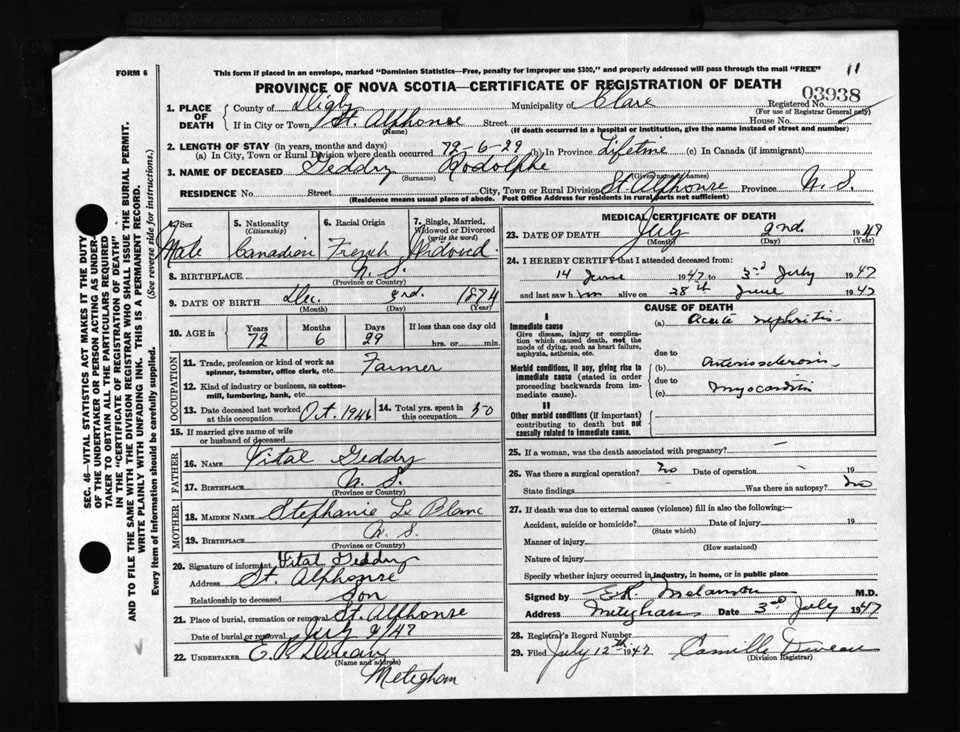 FORM 6
This form if placed in an envelope, marked "Dominion Statistics—Free, penalty for improper use $300," and properly addressed will pass through the mail "FREE"
11
PROVINCE OF NOVA SCOTIA—CERTIFICATE OF REGISTRATION OF DEATH
03938
1. PLACE OF DEATH
County of Digby Municipality of Clare Registered No.
(For use of Registrar General only)
If in City or Town St. Alphonse Street House No.
(Name) (If death occurred in a hospital or institution, give the name instead of street and number)
2. LENGTH OF STAY (in years, months and days)
(a) In City, Town or Rural Division where death occurred 72-6-29 (b) In Province Lifetime (c) In Canada (if immigrant)
3. NAME OF DECEASED Geddry Rodolphe
(Surname) (Given names)
RESIDENCE No Street City, Town or Rural Division St. Alphonse Province N. S.
(Residence means usual place of abode. Post Office Address for residents in rural parts not sufficient)
4. Sex
Male
5. Nationality
(Citizenship)
Canadian
6. Racial Origin
French
7. Single, Married, Widowed or Divorced
(write the word)
Widowed
8. BIRTHPLACE N. S.
(Province or Country)
9. DATE OF BIRTH Dec. 3rd. 1874
(Month) (Day) (Year)
10. AGE in
Years Months Days If less than one day old
72 6 29 hrs. or min.
OCCUPATION
11. Trade, profession or kind of work as spinner, teamster, office clerk, etc. Farmer
12. Kind of industry or business, as cotton-mill, lumbering, bank, etc.
13. Date deceased last worked at this occupation Oct. 1946
14. Total yrs. spent in this occupation 50
15. If married give name of wife or husband of deceased
FATHER
16. NAME Vital Geddry
17. BIRTHPLACE N. S.
(Province or Country)
MOTHER
18. MAIDEN NAME Stephanie Le Blanc
19. BIRTHPLACE N. S.
(Province or Country)
20. Signature of informant Vital Geddry
Address St. Alphonse
Relationship to deceased Son
21. Place of burial, cremation or removal St. Alphonse
Date of burial or removal July /47
22. UNDERTAKER E. R. Deveau
(Name and address)
Meteghan
MEDICAL CERTIFICATE OF DEATH
23. DATE OF DEATH July 2nd. 1947
(Month) (Day) (Year)
24. I HEREBY CERTIFY that I attended deceased from:
14 June 1947 to 3rd July 1947
and last saw him alive on 28th June 1947
CAUSE OF DEATH
I
Immediate cause
Give disease, injury or complication which caused death, not the mode of dying, such as heart failure, asphyxia, asthenia, etc.
(a) Acute nephritis
due to
Morbid conditions, if any, giving rise to immediate cause (stated in order proceeding backwards from immediate cause).
(b) Arteriosclerosis
due to
(c) myocarditis
II
Other morbid conditions (if important) contributing to death but not causally related to immediate cause.
25. If a woman, was the death associated with pregnancy? —
26. Was there a surgical operation? no Date of operation - 19
State findings Was there an autopsy? no
27. If death was due to external causes (violence) fill in also the following:—
Accident, suicide or homicide? Date of injury 19
(State which)
Manner of injury
(How sustained)
Nature of injury
Specify whether injury occurred in industry, in home, or in public place
Signed by E.R. Melanson M.D.
Address Meteghan Date 3rd July 1947
28. Registrar's Record Number
29. Filed July 12th 1947 Camille Deveau
(Division Registrar)
SEC. 46—VITAL STATISTICS ACT MAKES IT THE DUTY
OF THE UNDERTAKER OR PERSON ACTING AS UNDER-
TAKER TO OBTAIN ALL THE PARTICULARS REQUIRED
IN THE "CERTIFICATE OF REGISTRATION OF DEATH"
AND TO FILE THE SAME WITH THE DIVISION REGISTRAR WHO SHALL ISSUE THE BURIAL PERMIT.
WRITE PLAINLY WITH UNFADING INK. THIS IS A PERMANENT RECORD.
Every item of Information should be carefully supplied. (See reverse side for instructions.)